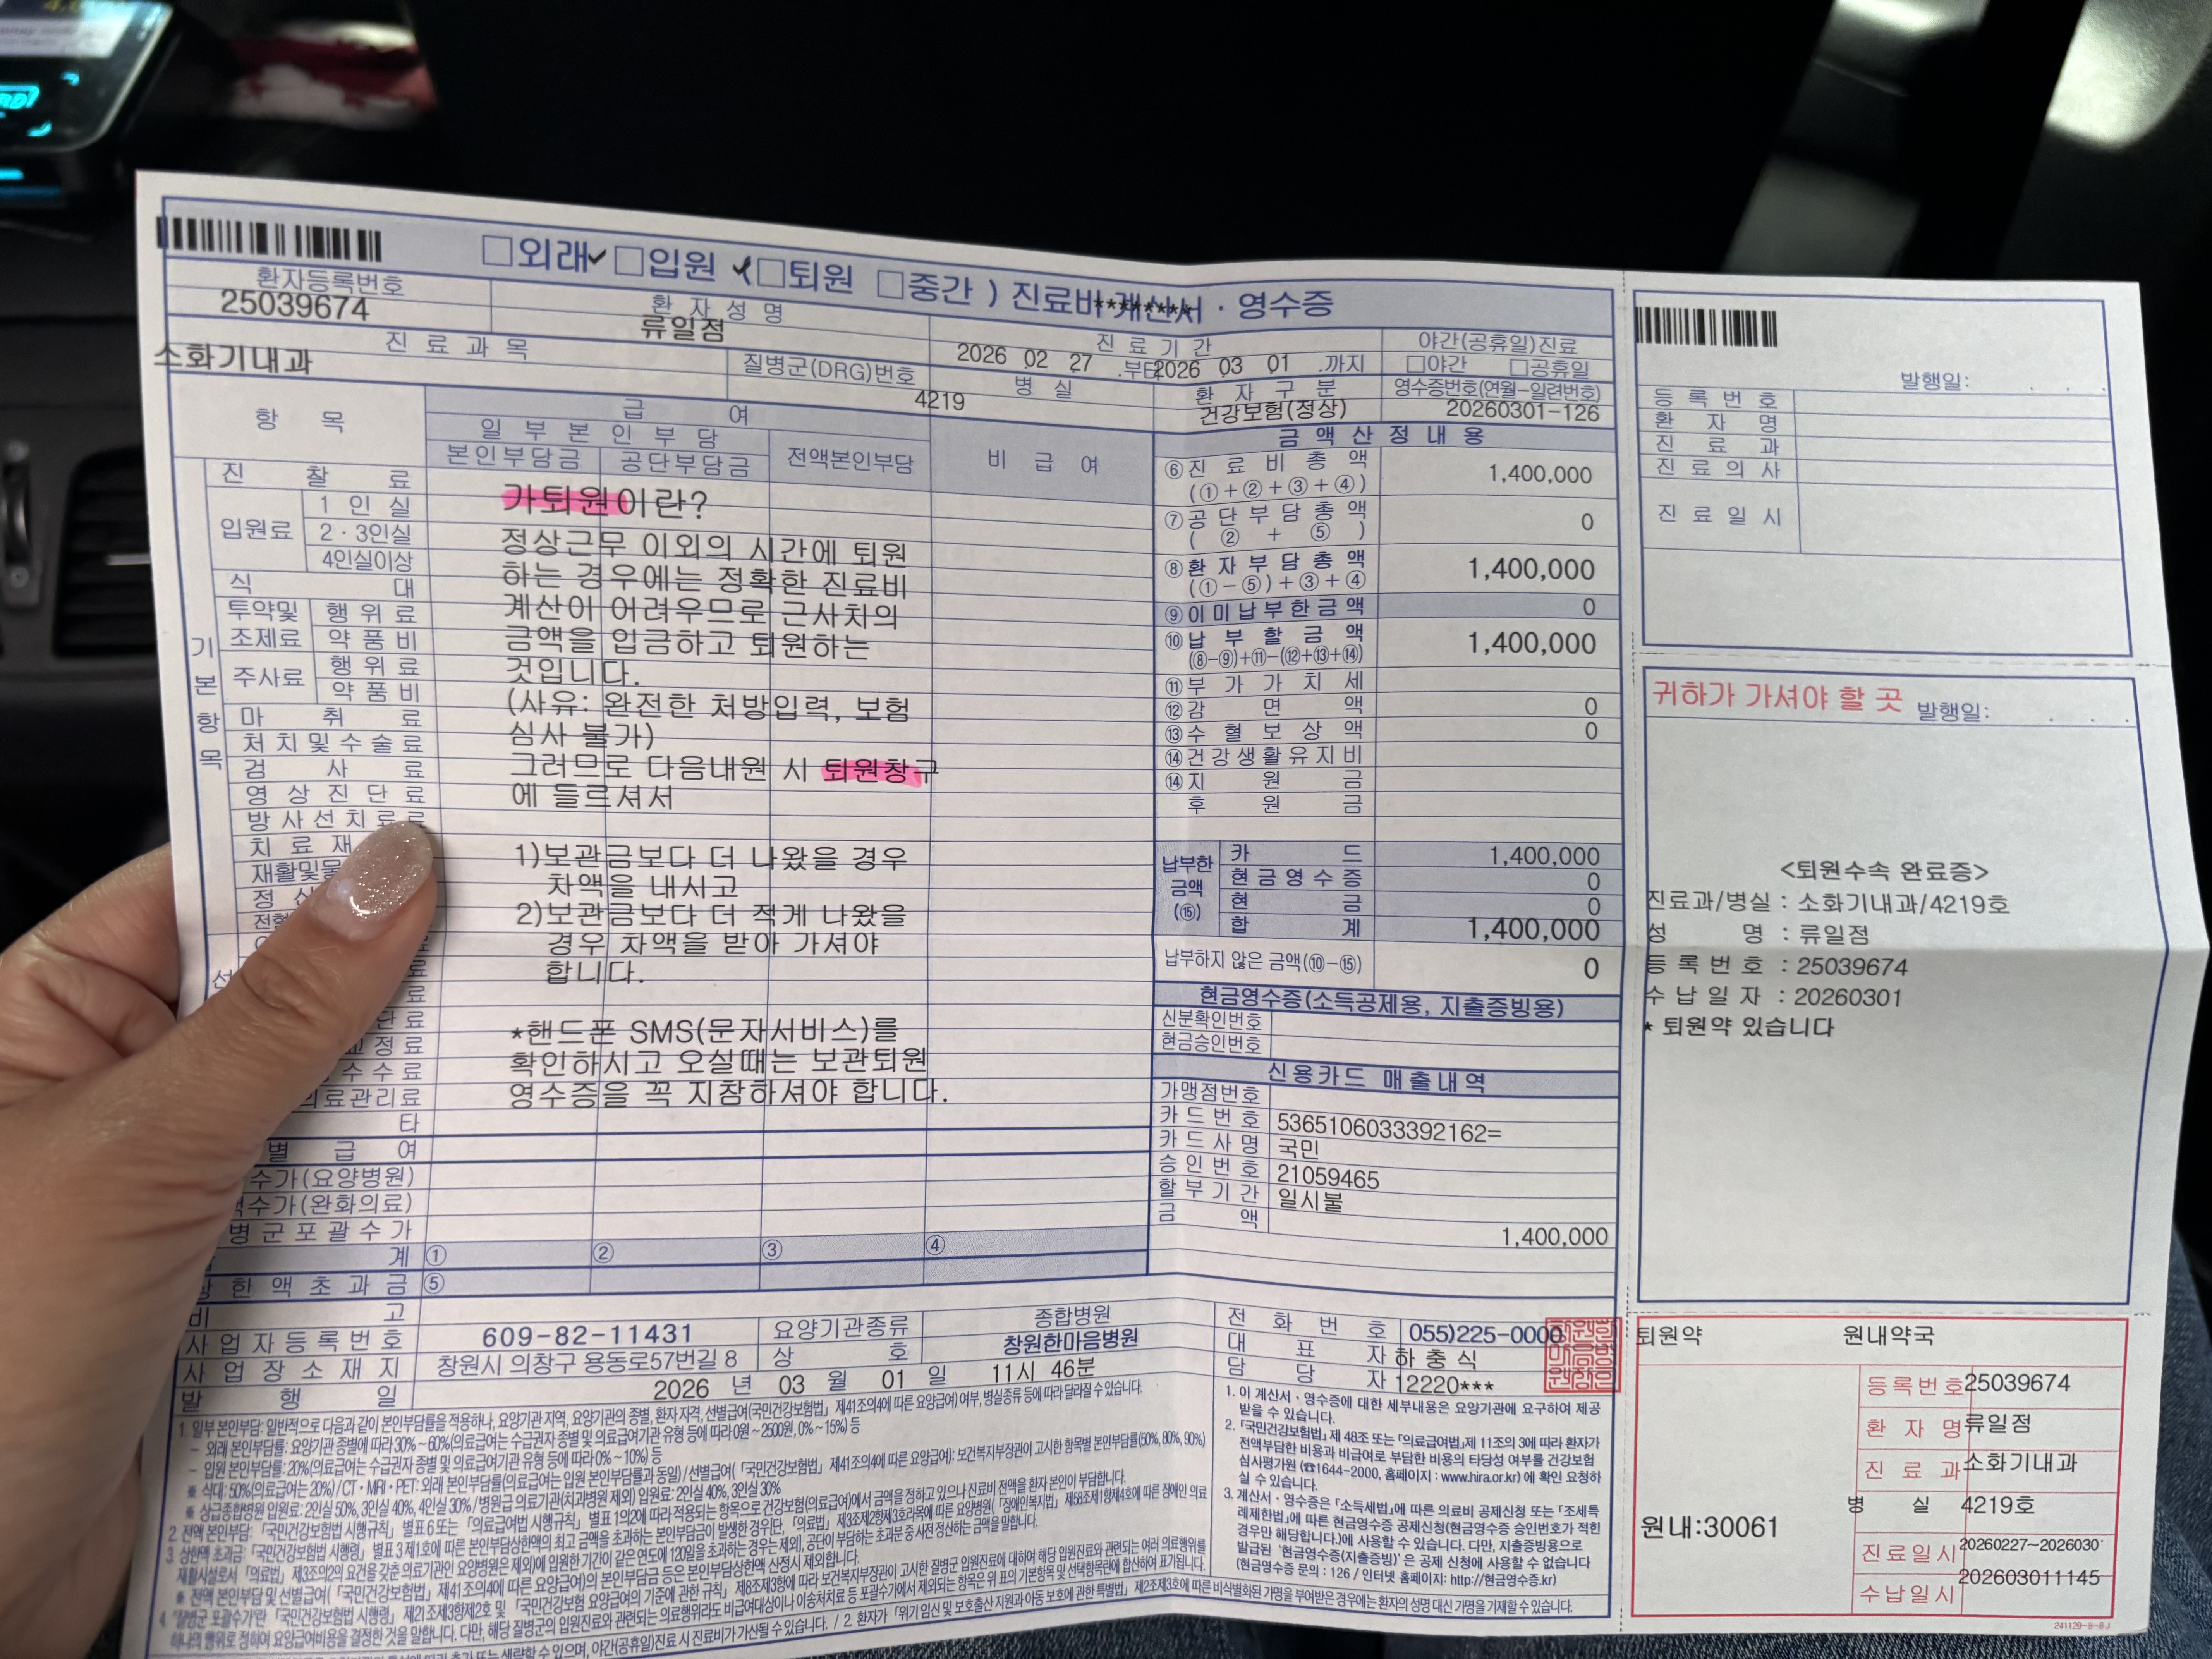 □외래✓□입원 (✓□퇴원 □중간 ) 진료비 계산서 · 영수증
환자등록번호
25039674
환 자 성 명
류일점
진 료 기 간
2026 02 27 .부터 2026 03 01 .까지
야간(공휴일)진료
□야간 □공휴일
진 료 과 목
소화기내과
질병군(DRG)번호
병 실
4219
환 자 구 분
건강보험(정상)
영수증번호(연월-일련번호)
20260301-126
항 목
급 여
일 부 본 인 부 담
본인부담금
공단부담금
전액본인부담
비 급 여
기 본 항 목
진 찰 료
입원료
1 인 실
2 · 3인실
4인실이상
식 대
투약및
조제료
행 위 료
약 품 비
주사료
행 위 료
약 품 비
마 취 료
처 치 및 수 술 료
검 사 료
영 상 진 단 료
방 사 선 치 료 료
치 료 재
재활및물
가퇴원이란?
정상근무 이외의 시간에 퇴원
하는 경우에는 정확한 진료비
계산이 어려우므로 근사치의
금액을 입금하고 퇴원하는
것입니다.
(사유: 완전한 처방입력, 보험
심사 불가)
그러므로 다음내원 시 퇴원창구
에 들르셔서
1)보관금보다 더 나왔을 경우
차액을 내시고
2)보관금보다 더 적게 나왔을
경우 차액을 받아 가셔야
합니다.
*핸드폰 SMS(문자서비스)를
확인하시고 오실때는 보관퇴원
영수증을 꼭 지참하셔야 합니다.
교정료
수 수 료
의료관리료
타
별 급 여
수가(요양병원)
수가(완화의료)
병 군 포 괄 수 가
계 ① ② ③ ④
한 액 초 과 금 ⑤
금 액 산 정 내 용
⑥진 료 비 총 액
(①+②+③+④)
1,400,000
⑦공 단 부 담 총 액
( ② + ⑤ )
0
⑧환 자 부 담 총 액
(①-⑤)+③+④
1,400,000
⑨이 미 납 부 한 금 액
0
⑩납 부 할 금 액
(⑧-⑨)+⑪-(⑫+⑬+⑭)
1,400,000
⑪부 가 가 치 세
⑫감 면 액
0
⑬수 혈 보 상 액
0
⑭건 강 생 활 유 지 비
⑭지 원 금
후 원 금
납부한
금액
(⑮)
카 드 1,400,000
현 금 영 수 증 0
현 금 0
합 계 1,400,000
납부하지 않은 금액(⑩-⑮) 0
현금영수증(소득공제용, 지출증빙용)
신분확인번호
현금승인번호
신 용 카 드 매 출 내 역
가맹점번호
카 드 번 호 5365106033392162=
카 드 사 명 국민
승 인 번 호 21059465
할 부 기 간 일시불
금 액 1,400,000
비 고
사 업 자 등 록 번 호 609-82-11431
요양기관종류 종합병원
사 업 장 소 재 지 창원시 의창구 용동로57번길 8
상 호 창원한마음병원
발 행 일 2026 년 03 월 01 일 11시 46분
전 화 번 호 055)225-0000
대 표 자 하 충 식
담 당 자 12220***
1. 일부 본인부담: 일반적으로 다음과 같이 본인부담률을 적용하나, 요양기관 지역, 요양기관의 종별, 환자 자격, 선별급여(국민건강보험법」 제41조의4에 따른 요양급여) 여부, 병실종류 등에 따라 달라질 수 있습니다.
- 외래 본인부담률: 요양기관 종별에 따라 30% ~ 60%(의료급여는 수급권자 종별 및 의료급여기관 유형 등에 따라 0원 ~ 2500원, 0% ~ 15%) 등
- 입원 본인부담률: 20%(의료급여는 수급권자 종별 및 의료급여기관 유형 등에 따라 0% ~ 10%) 등
1. 이 계산서 · 영수증에 대한 세부내용은 요양기관에 요구하여 제공
받을 수 있습니다.
2. 「국민건강보험법」 제 48조 또는 「의료급여법」제 11조의 3에 따라 환자가
전액부담한 비용과 비급여로 부담한 비용의 타당성 여부를 건강보험
심사평가원 (☎1644-2000, 홈페이지 : www.hira.or.kr) 에 확인 요청하
실 수 있습니다.
3. 계산서 · 영수증은 「소득세법」에 따른 의료비 공제신청 또는 「조세특
례제한법」에 따른 현금영수증 공제신청(현금영수증 승인번호가 적힌
경우만 해당합니다.)에 사용할 수 있습니다. 다만, 지출증빙용으로
발급된 '현금영수증(지출증빙)' 은 공제 신청에 사용할 수 없습니다
(현금영수증 문의 : 126 / 인터넷 홈페이지: http://현금영수증.kr)
발행일: . . .
등 록 번 호
환 자 명
진 료 과
진 료 의 사
진 료 일 시
귀하가 가셔야 할 곳 발행일: . . .
<퇴원수속 완료증>
진료과/병실 : 소화기내과/4219호
성 명 : 류일점
등 록 번 호 : 25039674
수 납 일 자 : 20260301
* 퇴원약 있습니다
퇴원약 원내약국
원내:30061
등 록 번 호 25039674
환 자 명 류일점
진 료 과 소화기내과
병 실 4219호
진 료 일 시 20260227~2026030
수 납 일 시 202603011145